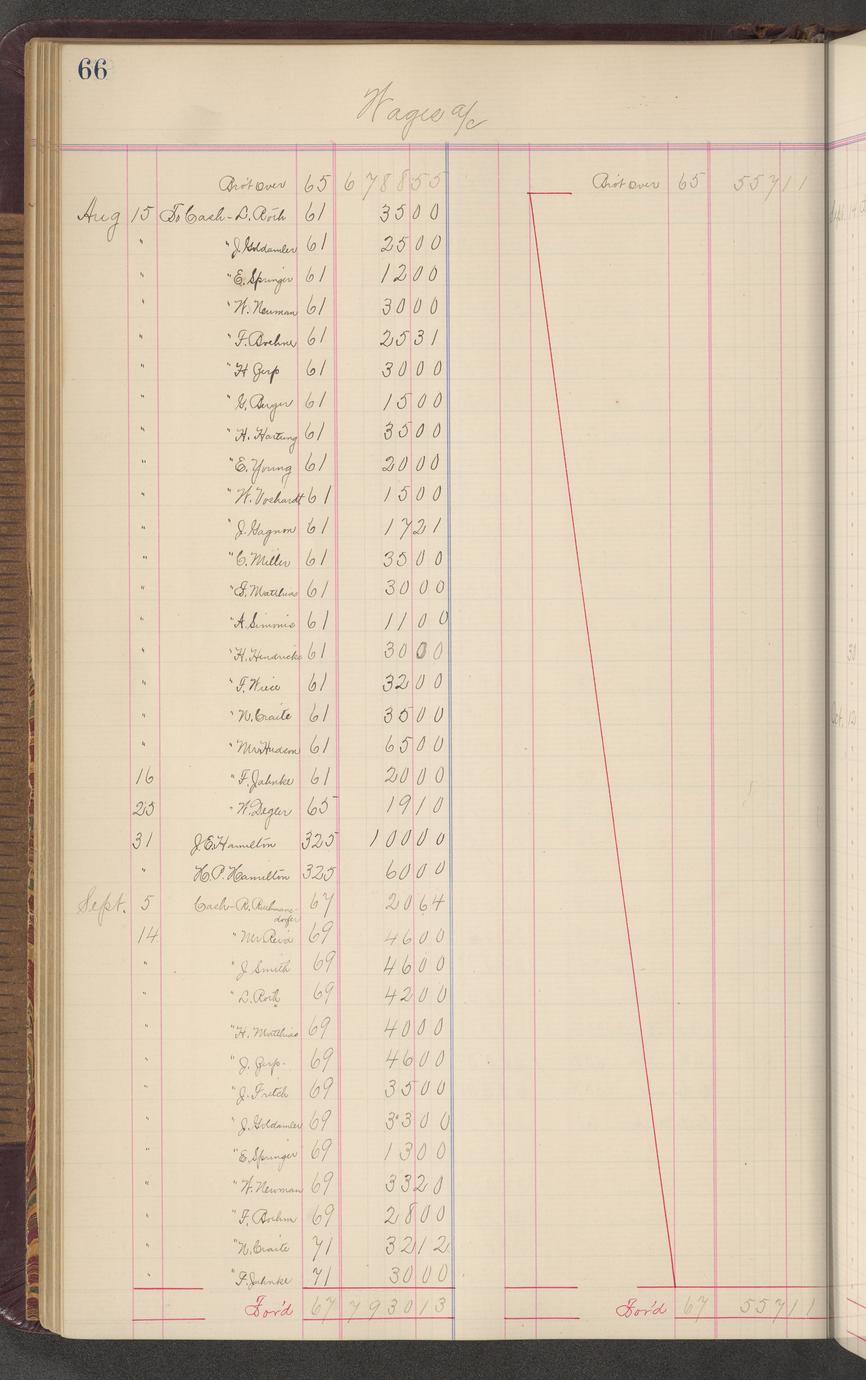 66
Wages a/c
Bro't over 65 6788 55 Bro't over 65 557 11
Aug 15 To Cash - L. Roth 61 35 00
" " J. Goldamler 61 25 00
" " E. Springer 61 12 00
" " W. Neuman 61 30 00
" " F. Boehme 61 25 31
" " H Gerp 61 30 00
" " G. Berger 61 15 00
" " H. Hartung 61 35 00
" " E. Young 61 20 00
" " W. 61 15 00
" " J. Gagnon 61 17 21
" " C. Miller 61 35 00
" " G. Matthias 61 30 00
" " A. Simmis 61 11 00
" " H. Hendricks 61 30 00
" " F. Wiese 61 32 00
" " N. Craite 61 35 00
" " Mr. Hudson 61 65 00
16 " F. Jahnke 61 20 00
25 " W. Degler 65 19 10
31 J. E. Hamilton 325 100 00
" H. P. Hamilton 325 60 00
Sept. 5 Cash - R. 67 20 64
14 " Mr. 69 46 00
" " J Smith 69 46 00
" " L. Roth 69 42 00
" " H. Matthias 69 40 00
" " J. Gerp. 69 46 00
" " J. Fritch 69 35 00
" " J. Goldamler 69 33 00
" " E. Springer 69 13 00
" " W. Newman 69 33 20
" " F. Boehm 69 28 00
" " N. Craite 71 32 12
" " F. Jahnke 71 30 00
For'd 67 7930 13 For'd 67 557 11